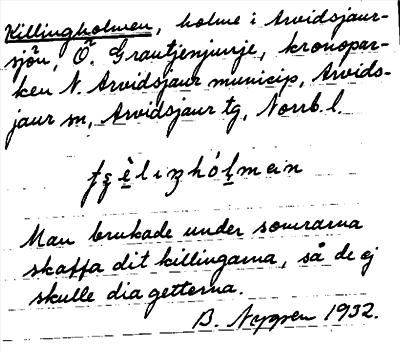 Killingholmen, holme i Arvidsjaur-
sjön, Ö. Grautjenjunje, kronopar-
ken N. Arvidsjaur municip, Arvids-
jaur sn, Arvidsjaur tg, Norrb. l.
Man brukade under somrarna
skaffa dit killingarna, så de ej
skulle dia getterna.
B. Nygren 1932.